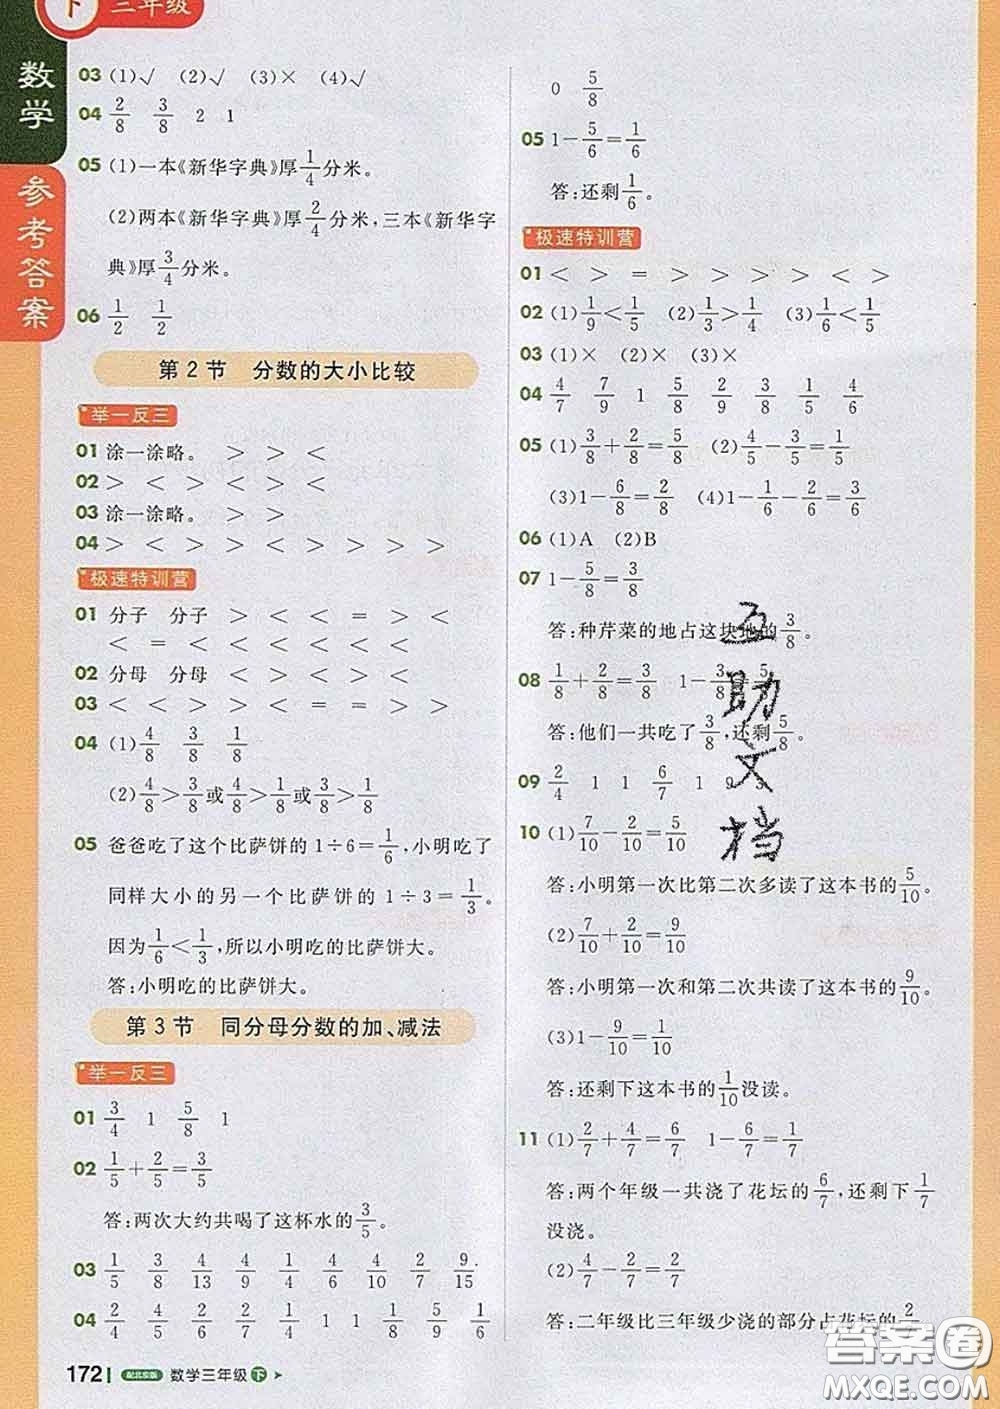 下 三年级
数学
参考答案
03 (1)√ (2)√ (3)× (4)√
04 2/8 3/8 2 1
05 (1)一本《新华字典》厚1/4分米。
(2)两本《新华字典》厚2/4分米,三本《新华字
典》厚3/4分米。
06 1/2 1/2
第2节 分数的大小比较
举一反三
01 涂一涂略。 > > <
02 > > < < > > <
03 涂一涂略。 > >
04 > < > > < > > > >
极速特训营
01 分子 分子 > < < = > <
< = < < < < < <
02 分母 分母 < > > > > >
03 < > > > < = = > >
04 (1)4/8 3/8 1/8
(2)4/8>3/8或4/8>1/8或3/8>1/8
05 爸爸吃了这个比萨饼的1÷6=1/6,小明吃了
同样大小的另一个比萨饼的1÷3=1/3。
因为1/6<1/3,所以小明吃的比萨饼大。
答:小明吃的比萨饼大。
第3节 同分母分数的加、减法
举一反三
01 3/4 1 5/8 1
02 1/5+2/5=3/5
答:两次大约共喝了这杯水的3/5。
03 1/5 3/8 4/13 4/9 1/4 4/6 4/10 2/7 9/15
04 2/4 4/5 2/6 2/7 1/4 1 1 1/8 5/9 1/6
172 配北京版 数学三年级 下
0 5/8
05 1-5/6=1/6
答:还剩1/6。
极速特训营
01 < > = > > > > < >
02 (1)1/9<1/5 (2)1/3>1/4 (3)1/6<1/5
03 (1)× (2)× (3)×
04 4/7 7/9 1 5/8 2/9 3/8 4/5 4/6
05 (1)3/8+2/8=5/8 (2)4/5-3/5=1/5
(3)1-6/8=2/8 (4)1-1/6-2/6=3/6
06 (1)A (2)B
07 1-5/8=3/8
答:种芹菜的地占这块地的3/8。
08 1/8+2/8=3/8 1-3/8=5/8
答:他们一共吃了3/8,还剩5/8。
09 2/4 1 1 6/7 1 9
10 (1)7/10-2/10=5/10
答:小明第一次比第二次多读了这本书的5/10。
(2)7/10+2/10=9/10
答:小明第一次和第二次共读了这本书的9/10。
(3)1-9/10=1/10
答:还剩下这本书的1/10没读。
11 (1)2/7+4/7=6/7 1-6/7=1/7
答:两个年级一共浇了花坛的6/7,还剩下1/7
没浇。
(2)4/7-2/7=2/7
答:二年级比三年级少浇的部分占花坛的2/7
互助文档
答案圈
MXQE.COM